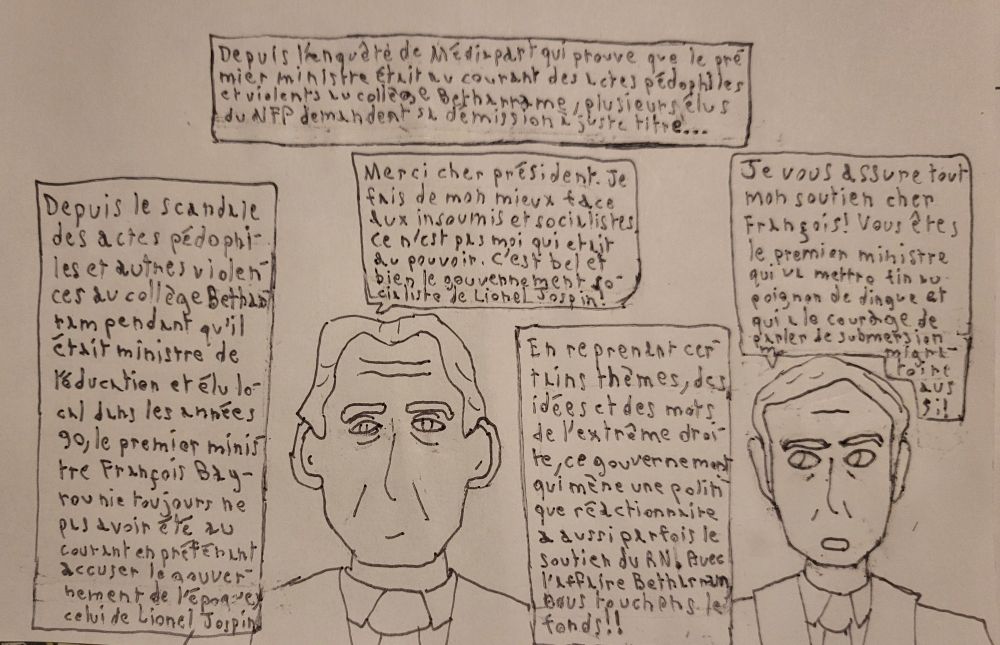 Depuis l'enquête de Médiapart qui prouve que le pré
mier ministre était au courant des actes pédophiles
et violents au collège Betharrame, plusieurs élus
du NFP demandent sa démission à juste titre...
Depuis le scandale
des actes pédophi-
les et autres violen-
ces au collège Bethar
ram pendant qu'il
était ministre de
l'éducation et élu lo-
cal dans les années
90, le premier minis
tre François Bay-
rou nie toujours ne
pas avoir été au
courant en préférant
accuser le gouver-
nement de l'époque,
celui de Lionel Jospin
Merci cher président. Je
fais de mon mieux face
aux insoumis et socialistes
ce n'est pas moi qui etait
au pouvoir. C'est bel et
bien le gouvernement so-
cialiste de Lionel Jospin!
En reprenant cer-
tains thèmes, des
idées et des mots
de l'extrême droi-
te, ce gouvernement
qui mène une politi
que réactionnaire
a aussi parfois le
soutien du RN. Avec
l'affaire Betharram
nous touchons le
fonds!!
Je vous assure tout
mon soutien cher
François! Vous êtes
le premier ministre
qui va mettre fin au
pognon de dingue et
qui a le courage de
parler de submersion
migra-
toire
aus
si!